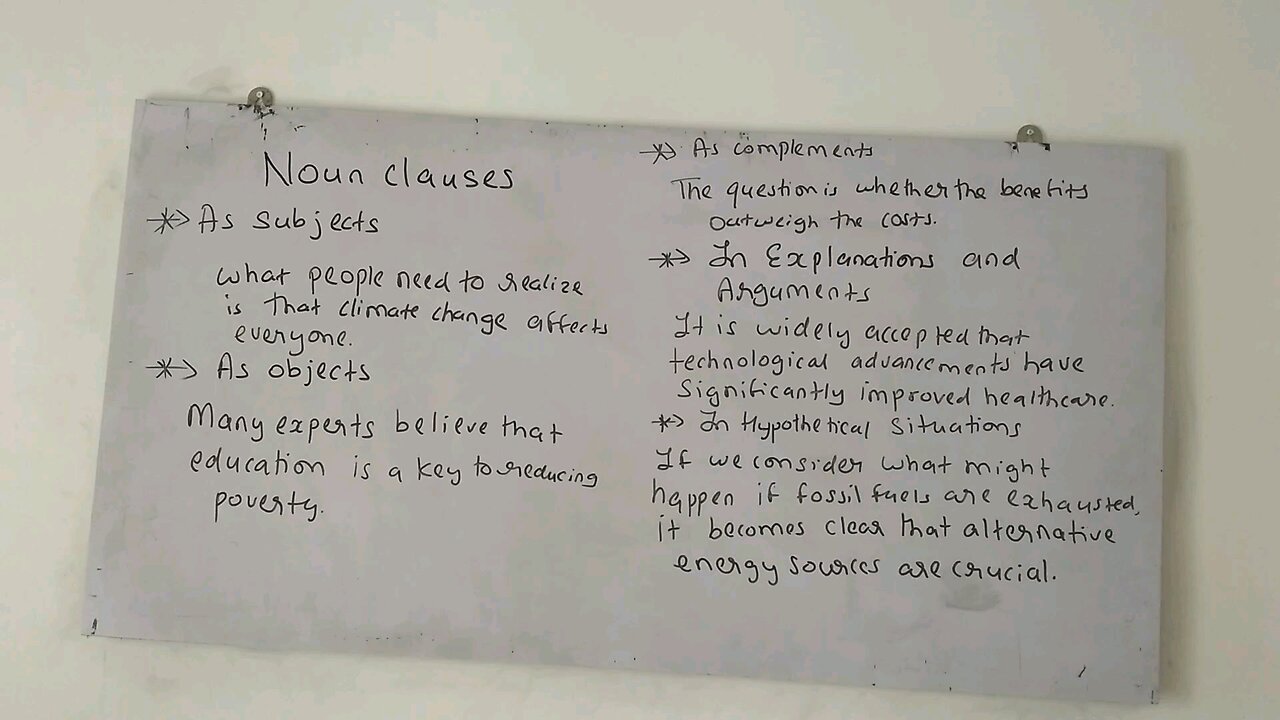 Noun clauses
As subjects
what people need to realize
is that climate change affects
everyone.
As objects
Many experts believe that
education is a key to reducing
poverty.
As complements
The question is whether the benefits
outweigh the costs.
In Explanations and
Arguments
It is widely accepted that
technological advancements have
Significantly improved healthcare.
In Hypothetical Situations
If we consider what might
happen if fossil fuels are exhausted,
it becomes clear that alternative
energy sources are crucial.